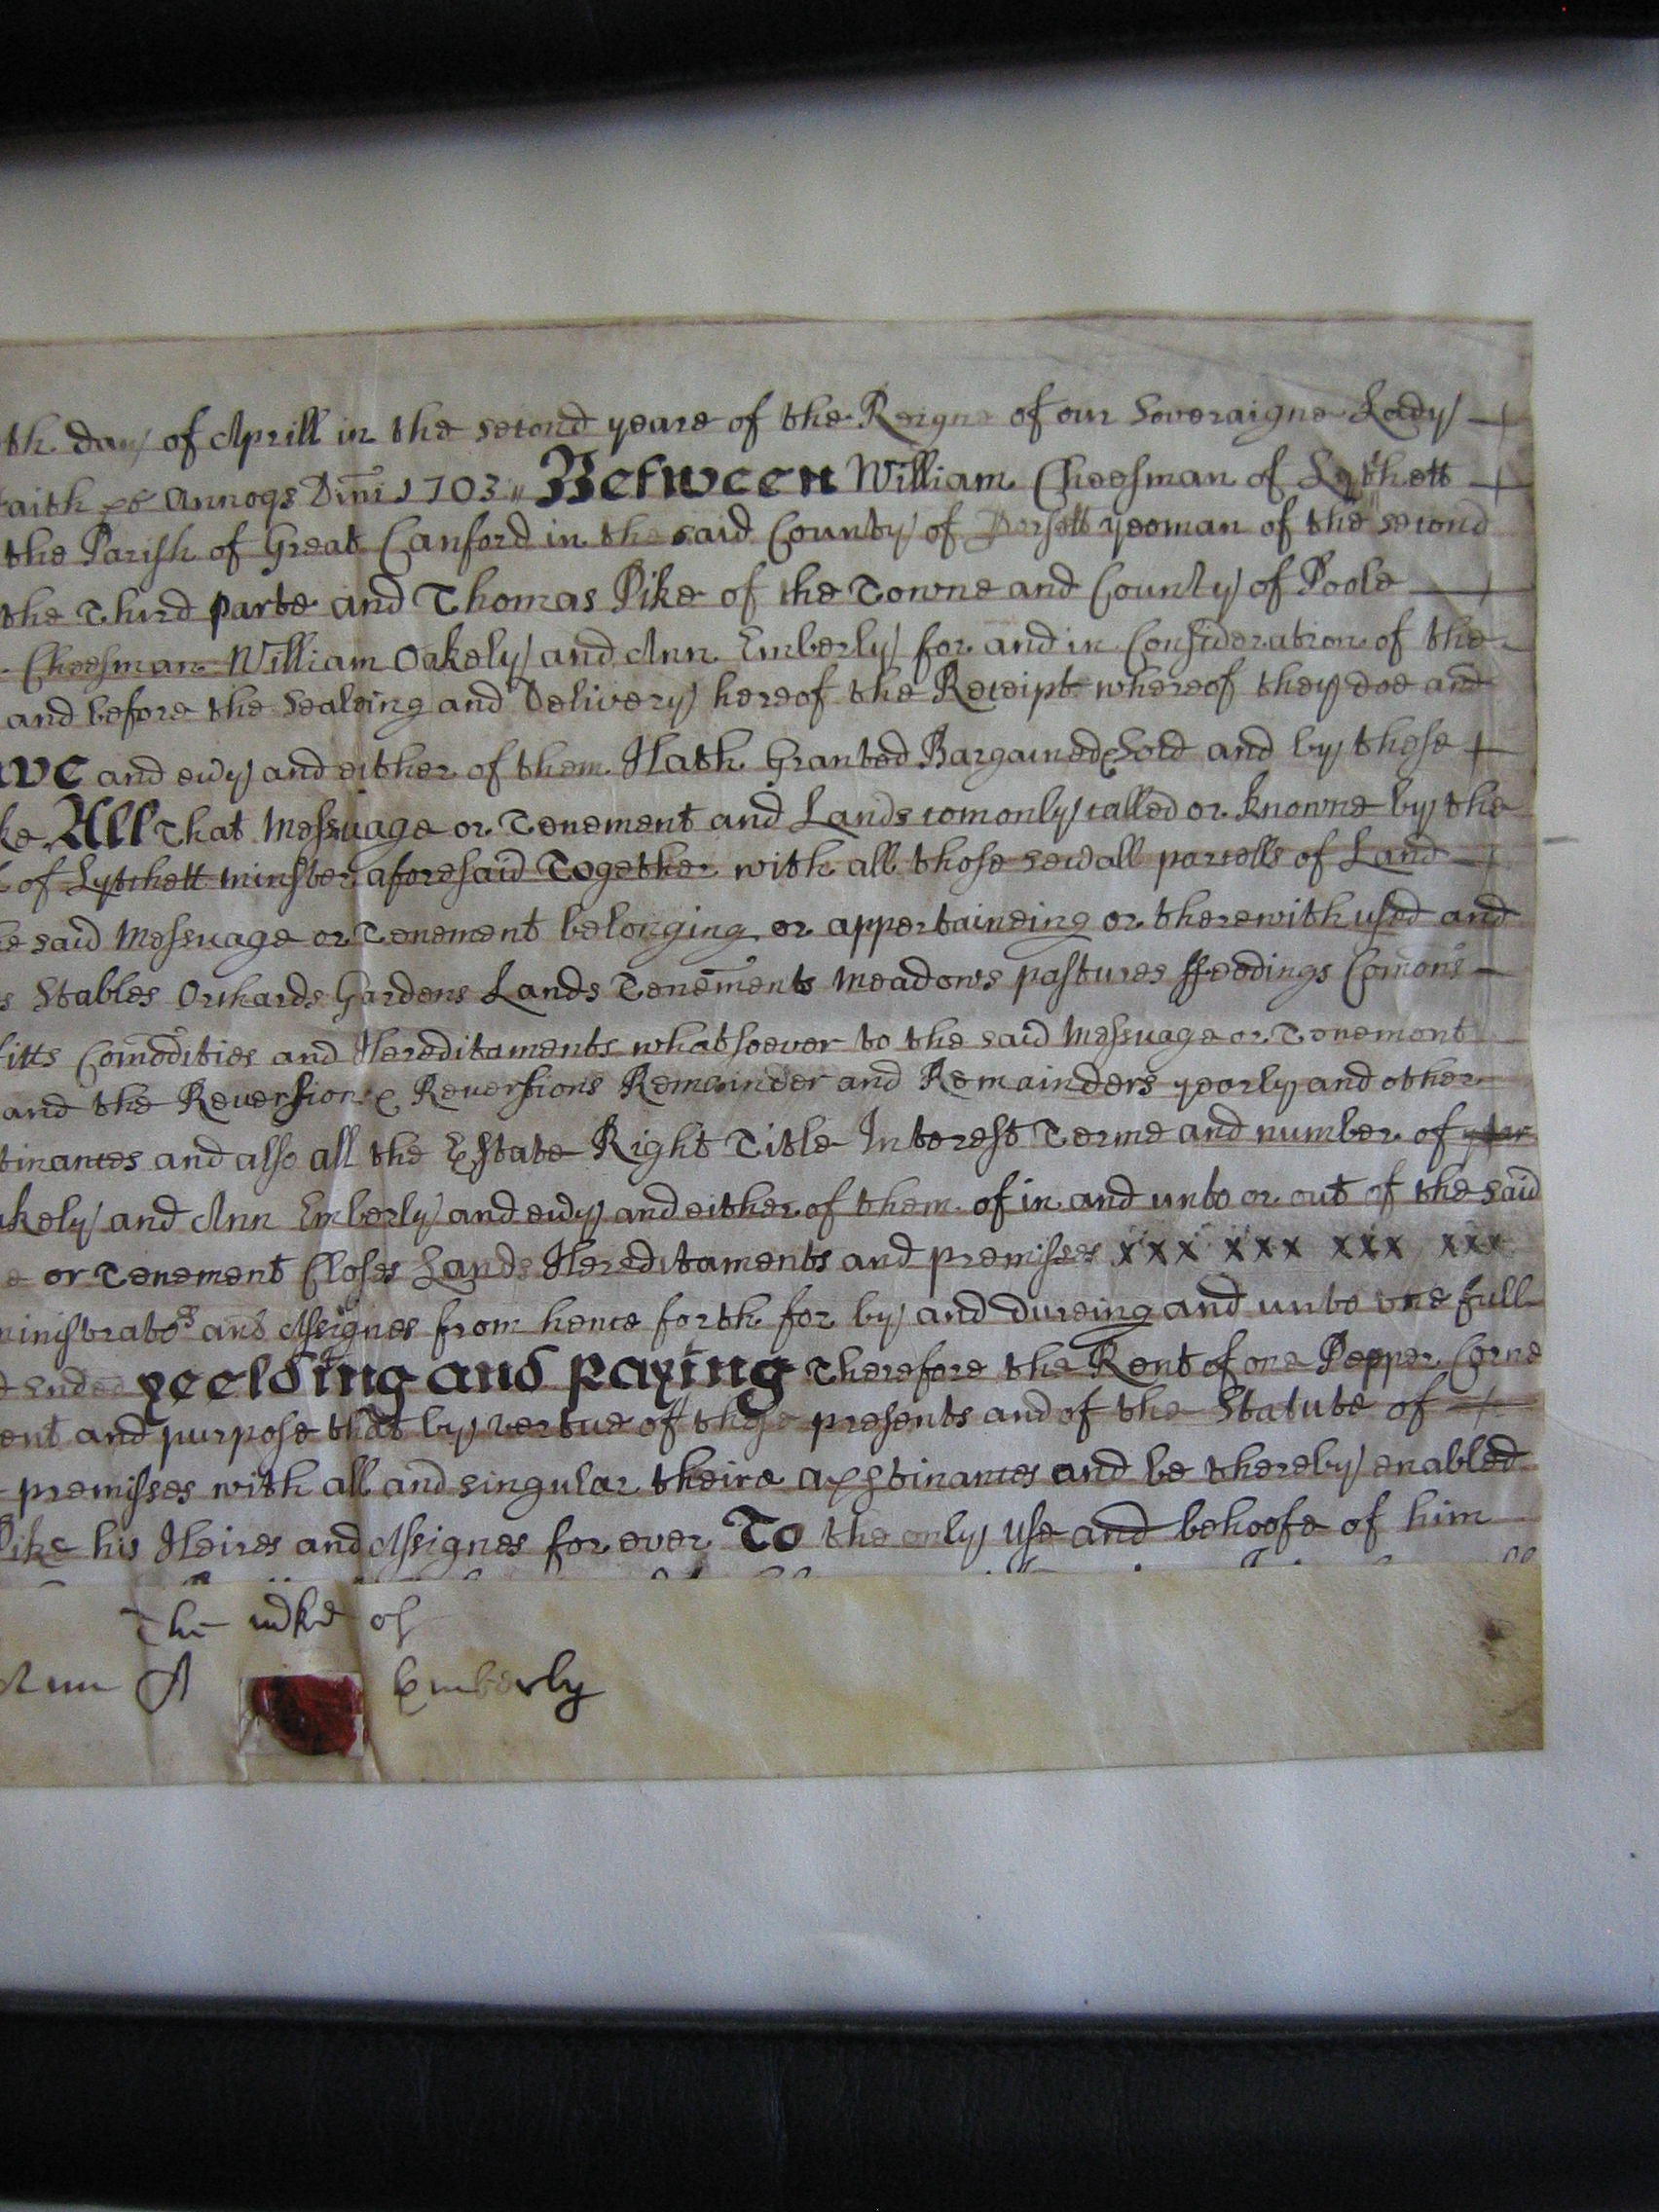 th day of Aprill in the second yeare of the Reigne of our Soveraigne Lady
faith &c Annoqs Dm̄i 1703 Between William Cheesman of Lytchett
the Parish of Great Canford in the said County of Dorsett yeoman of the second
the Third parte and Thomas Pike of the Towne and County of Poole
Cheesman William Oakely and Ann Emberly for and in Consideration of the
and before the Sealeing and Delivery hereof the Receipt whereof they doe and
and evy and either of them Hath Granted Bargained & Sold and by these
ke All That Messuage or Tenement and Lands comonly called or knowne by the
of Lytchett minster aforesaid Together with all those sevall parcells of Land
said Messuage or Tenement belonging or appertaineing or therewith used and
s Stables Orchards Gardens Lands Tenements Meadows pastures ffeedings Com̄ons
fitts Com̄odities and Hereditaments whatsoever to the said Messuage or Tenement
and the Reversion & Reversions Remainder and Remainders yearly and other
tinances and also all the Estate Right Title Interest Terme and number of
akely and Ann Emberly and evy and either of them of in and unto or out of the said
e or Tenement Closes Lands Hereditaments and premisses xxx xxx xxx xxx
ministratōrs and Assignes from hence forth for by and dureing and unto one full
ended yeelding and paying Therefore the Rent of one Pepper Corne
ent and purpose that by vertue of these presents and of the Statute of
premisses with all and singular theire apptinances and be thereby enabled
Pike his Heires and Assignes for ever To the only use and behoofe of him
The mke of
Ann A Emberly